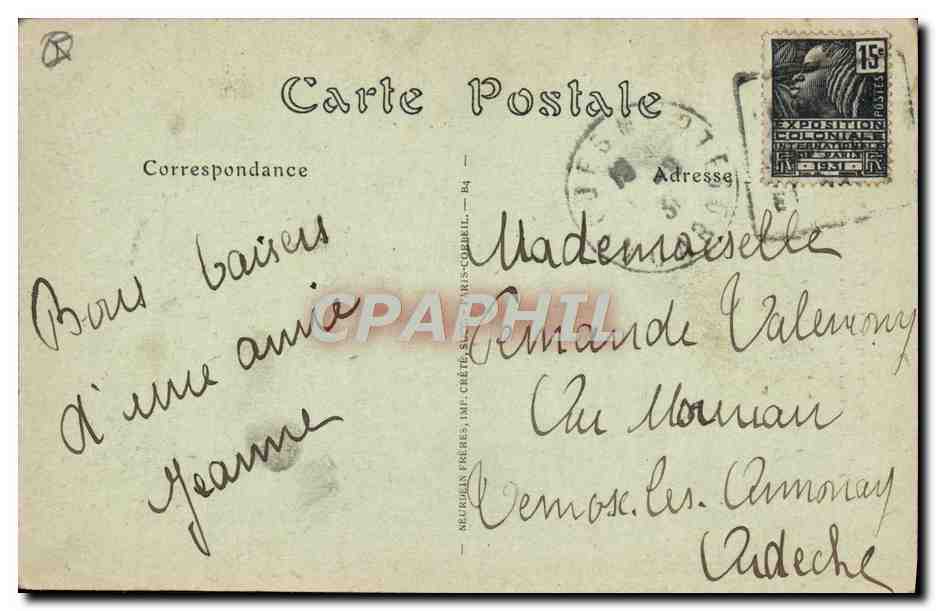 Carte Postale
15c
POSTES
EXPOSITION
COLONIALE
INTERNATIONALE
DE PARIS
1931
Correspondance
Adresse
Bons baisers
d'une amie
Jeanne
NEURDEIN FRÈRES, IMP. CRÉTÉ, SUCC. PARIS-CORBEIL. — B4
Mademoiselle
Fernande Valemony
Au Moureau
Vernosc-les-Annonay
Ardèche
CPAPHIL